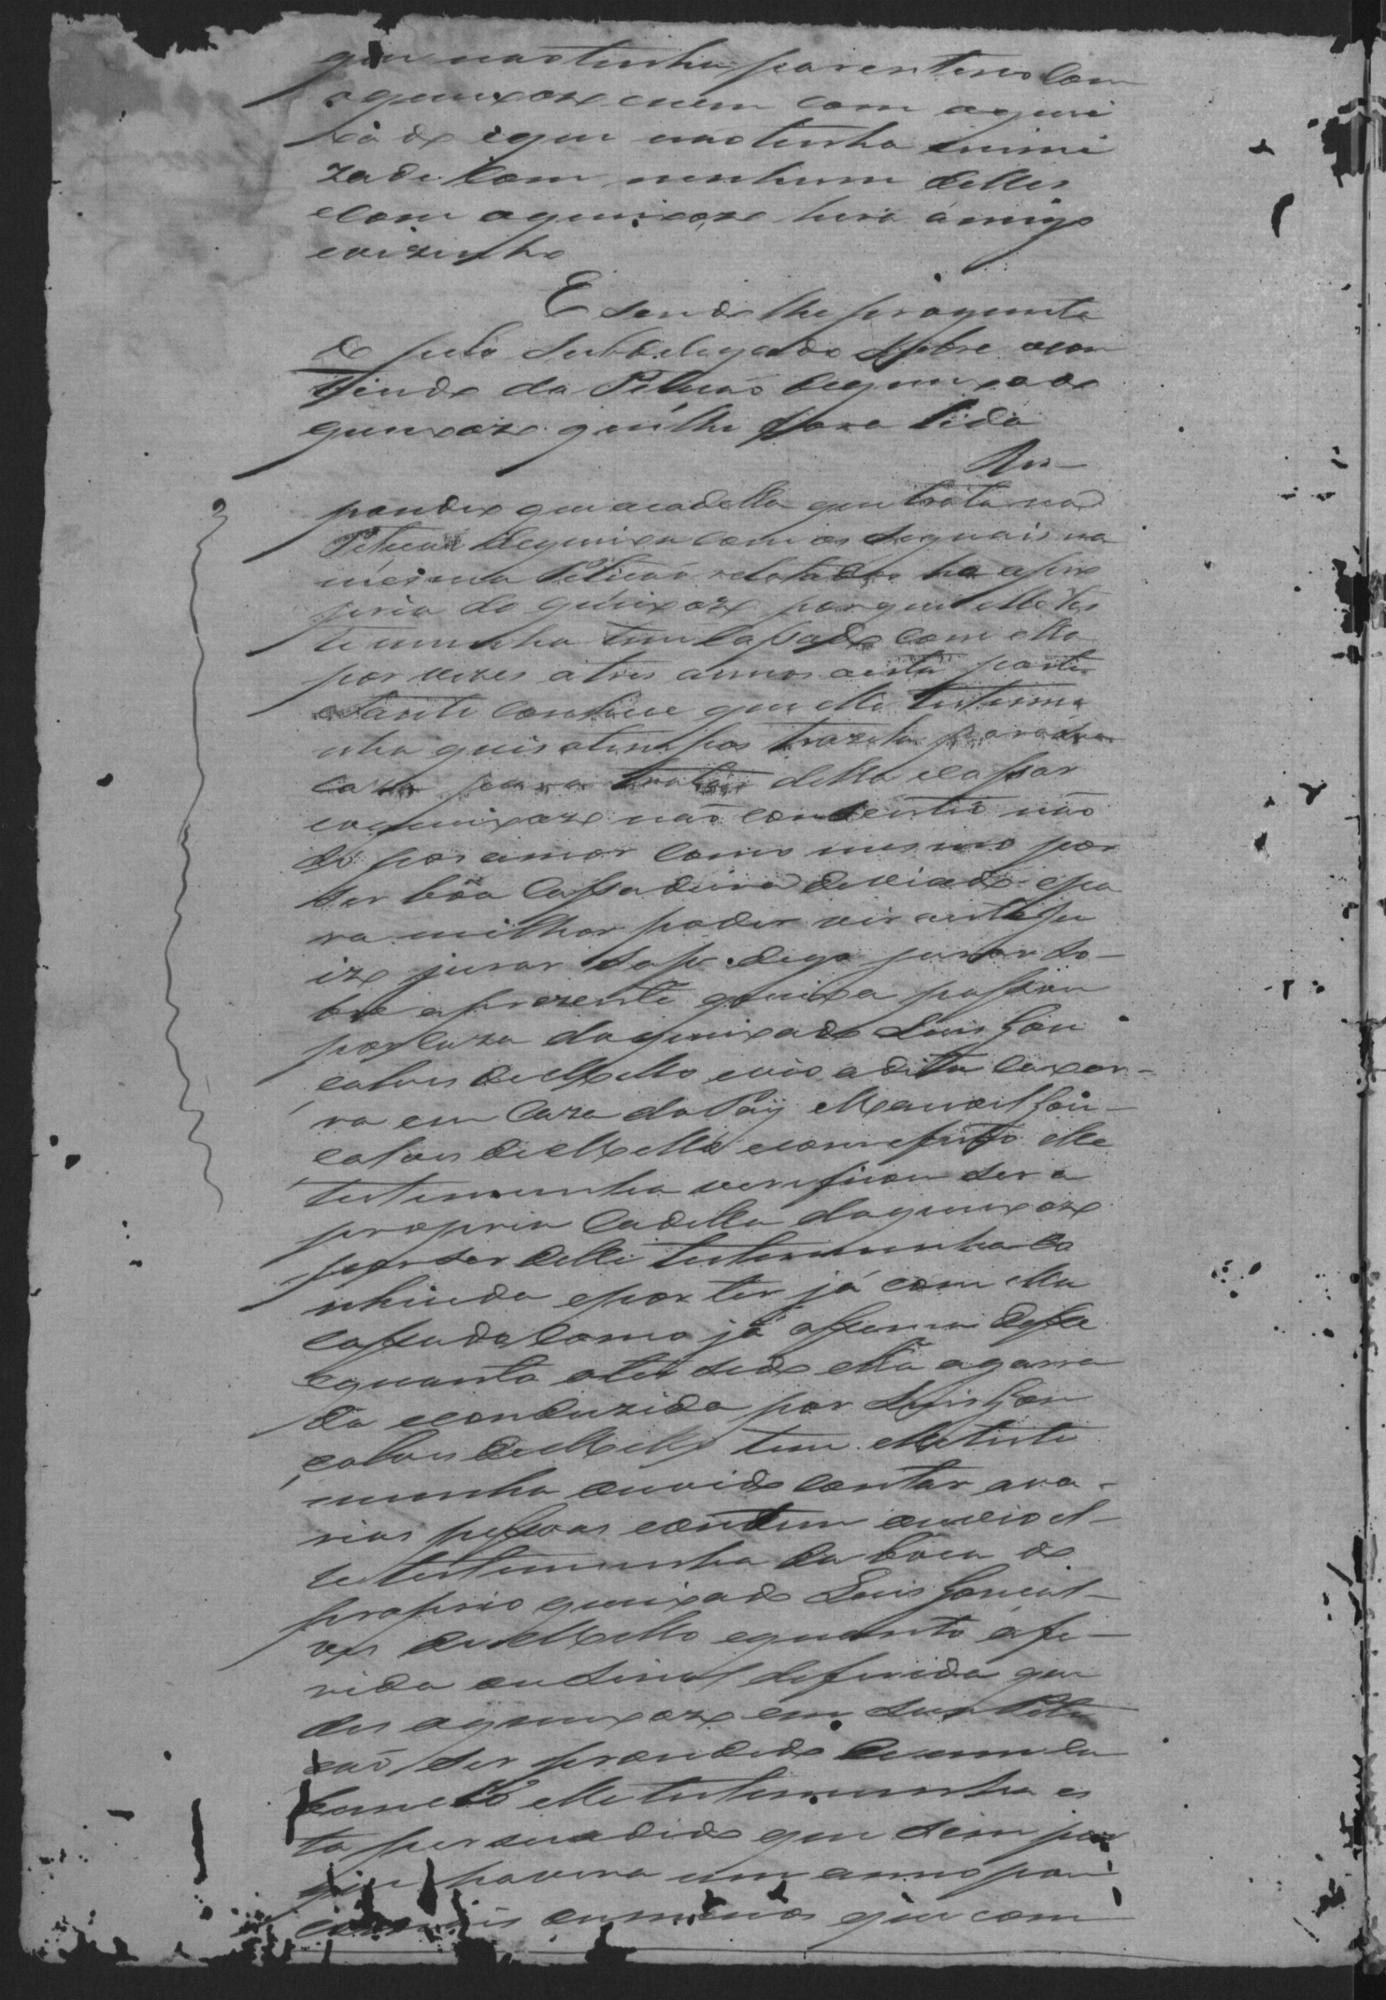 que não tinha parentesco com
o queixoze e nem com o quei
xado e que não tinha inimi
zade com nenhum delles
e com o queixoze hera amigo
e vizinho
E sendo lhe pregunta
do pelo Subdelegado sobre o con
tiudo da Petição de queixa do
queixoze que lhe fora lida
Res-
pondeo que a cadella que trata na
Petição de queixa com os signais na
mesma Petição relatados he a pro
pria do queixoze porque elle tes
temunha tem cassado com ella
por vezes a tres annos a esta parte
e tanto conhece que elle testemu
nha quis a tempos trazela para sua
caza para tratar della e cassar
e o queixoze não consentio não
só por amor como mesmo por
ser bôa cassadeira de viado e pa
ra milhor poder vir a este Ju
izo jurar sope digo jurar so-
bre a prezente queixa passou
por caza do queixado Luis Gon
calves de Mello e vio a dita caxor-
ra em caza do Pay Manoel Gon-
calves de Mello e com efeito elle
testemunha verificou ser a
propria cadella do queixoze
por ser delle testemunha co
nhecida e por ter já com ella
cassado como já afirmou disse
e quanto a ter sido ella agarra
da e conduzida por Luis Gon
calves de Mello tem elle teste
munha ouvido contar a va-
rias pessoas e tambem ouvio el-
le testemunha da bôca do
proprio queixado Luis Goncal-
ves de Mello e quanto a fe-
rida ou sinal de ferida que
diz o queixoze em sua Peti
cão ser procedido de uma
elle testemunha es
ta persuadido que sim por
que havera um anno pou
co mais ou menos que com